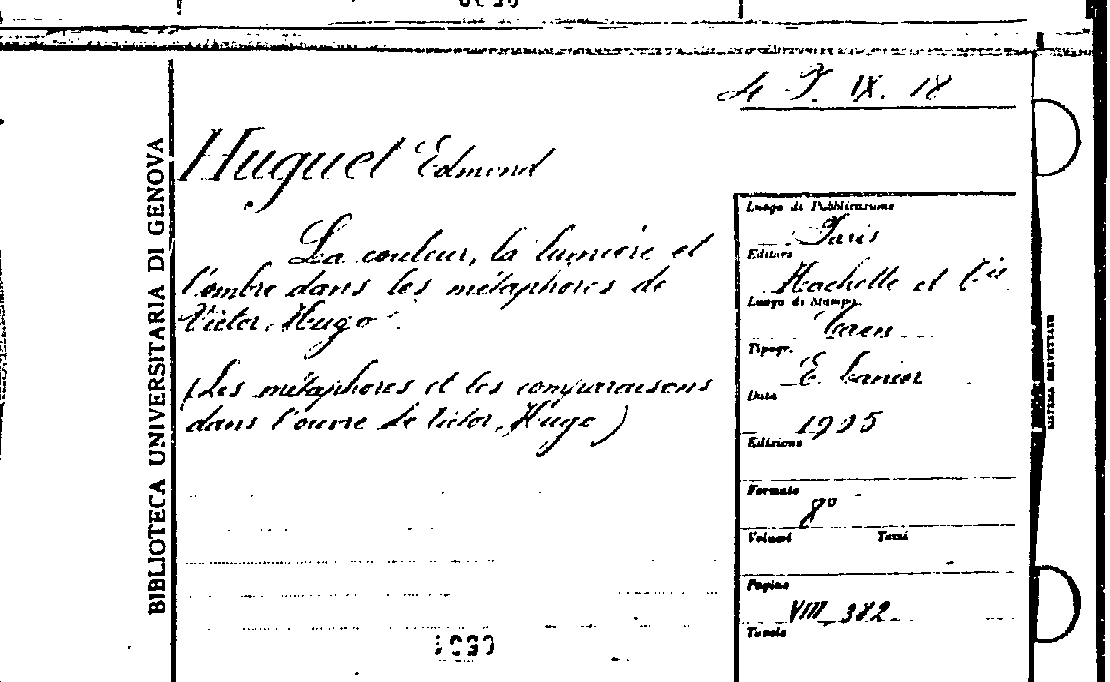 4 T. IX. 18
BIBLIOTECA UNIVERSITARIA DI GENOVA
Huguet Edmond
La couleur, la lumière et
l'ombre dans les métaphores de
Victor Hugo.
(Les métaphores et les comparaisons
dans l'ouvre de Victor Hugo)
Luogo di Pubblicazione
Paris
Editore
Hachette et Cie
Luogo di Stampa
Caen
Tipogr.
E. Lanier
Data
1905
Edizione
Formato
8º
Volumi Tomi
Pagine
VIII 382
Tavole